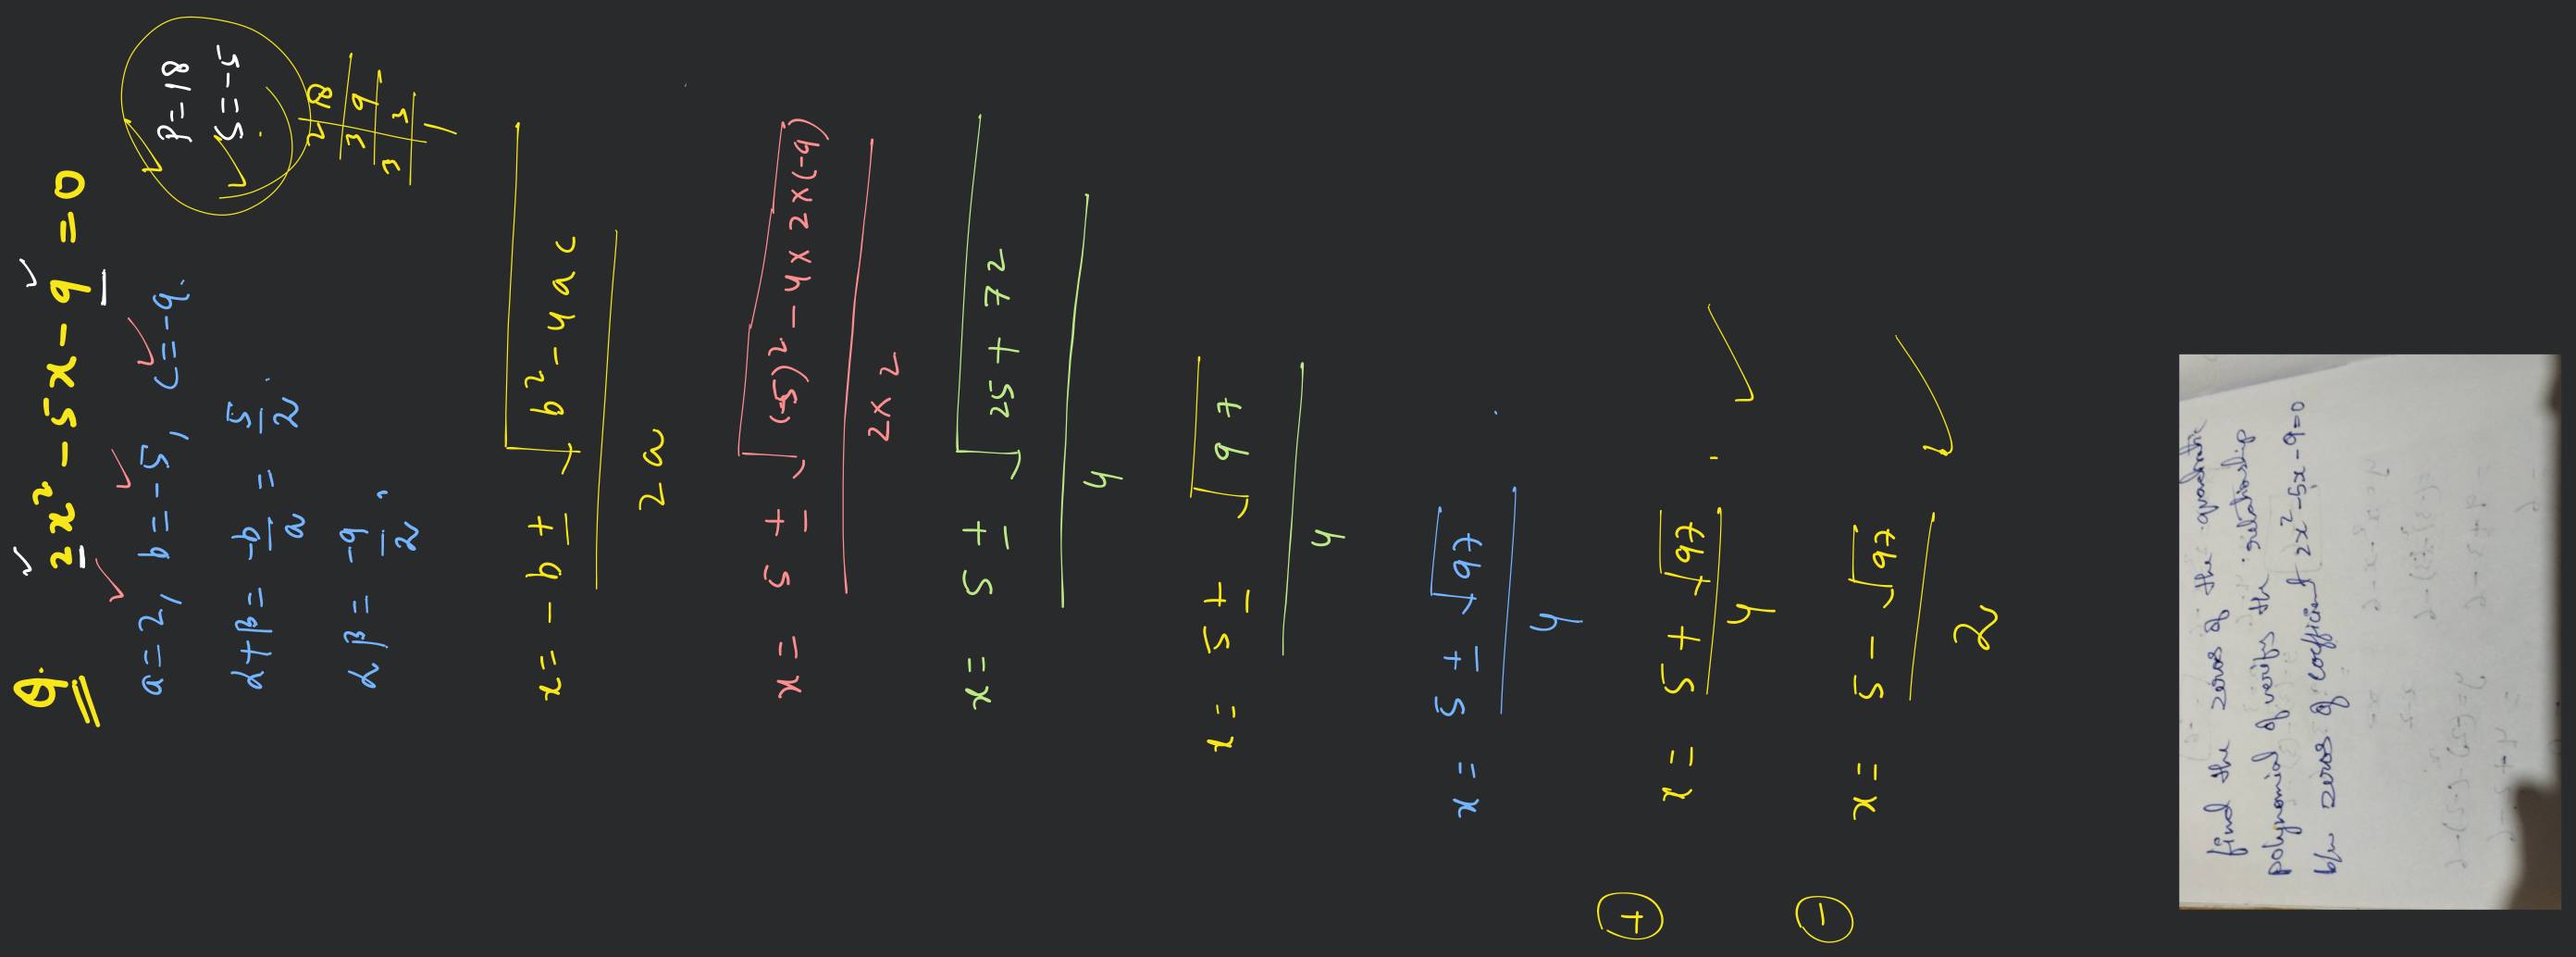 Q. 2x² - 5x - 9 = 0
a = 2, b = -5, c = -9.
P = 18
S = -5
α + β = -b/a = 5/2
αβ = -9/2
2 | 18
3 | 9
3 | 3
1
x = -b ± √(b² - 4ac) / 2a
x = 5 ± √((-5)² - 4 × 2 × (-9)) / 2 × 2
x = 5 ± √(25 + 72) / 4
x = 5 ± √97 / 4
x = 5 ± √97 / 4
+ x = 5 + √97 / 4
- x = 5 - √97 / 2
find the zeros of the quadratic
polynomial & verify the relationship
b/w zeros & coefficient 2x² - 5x - 9 = 0